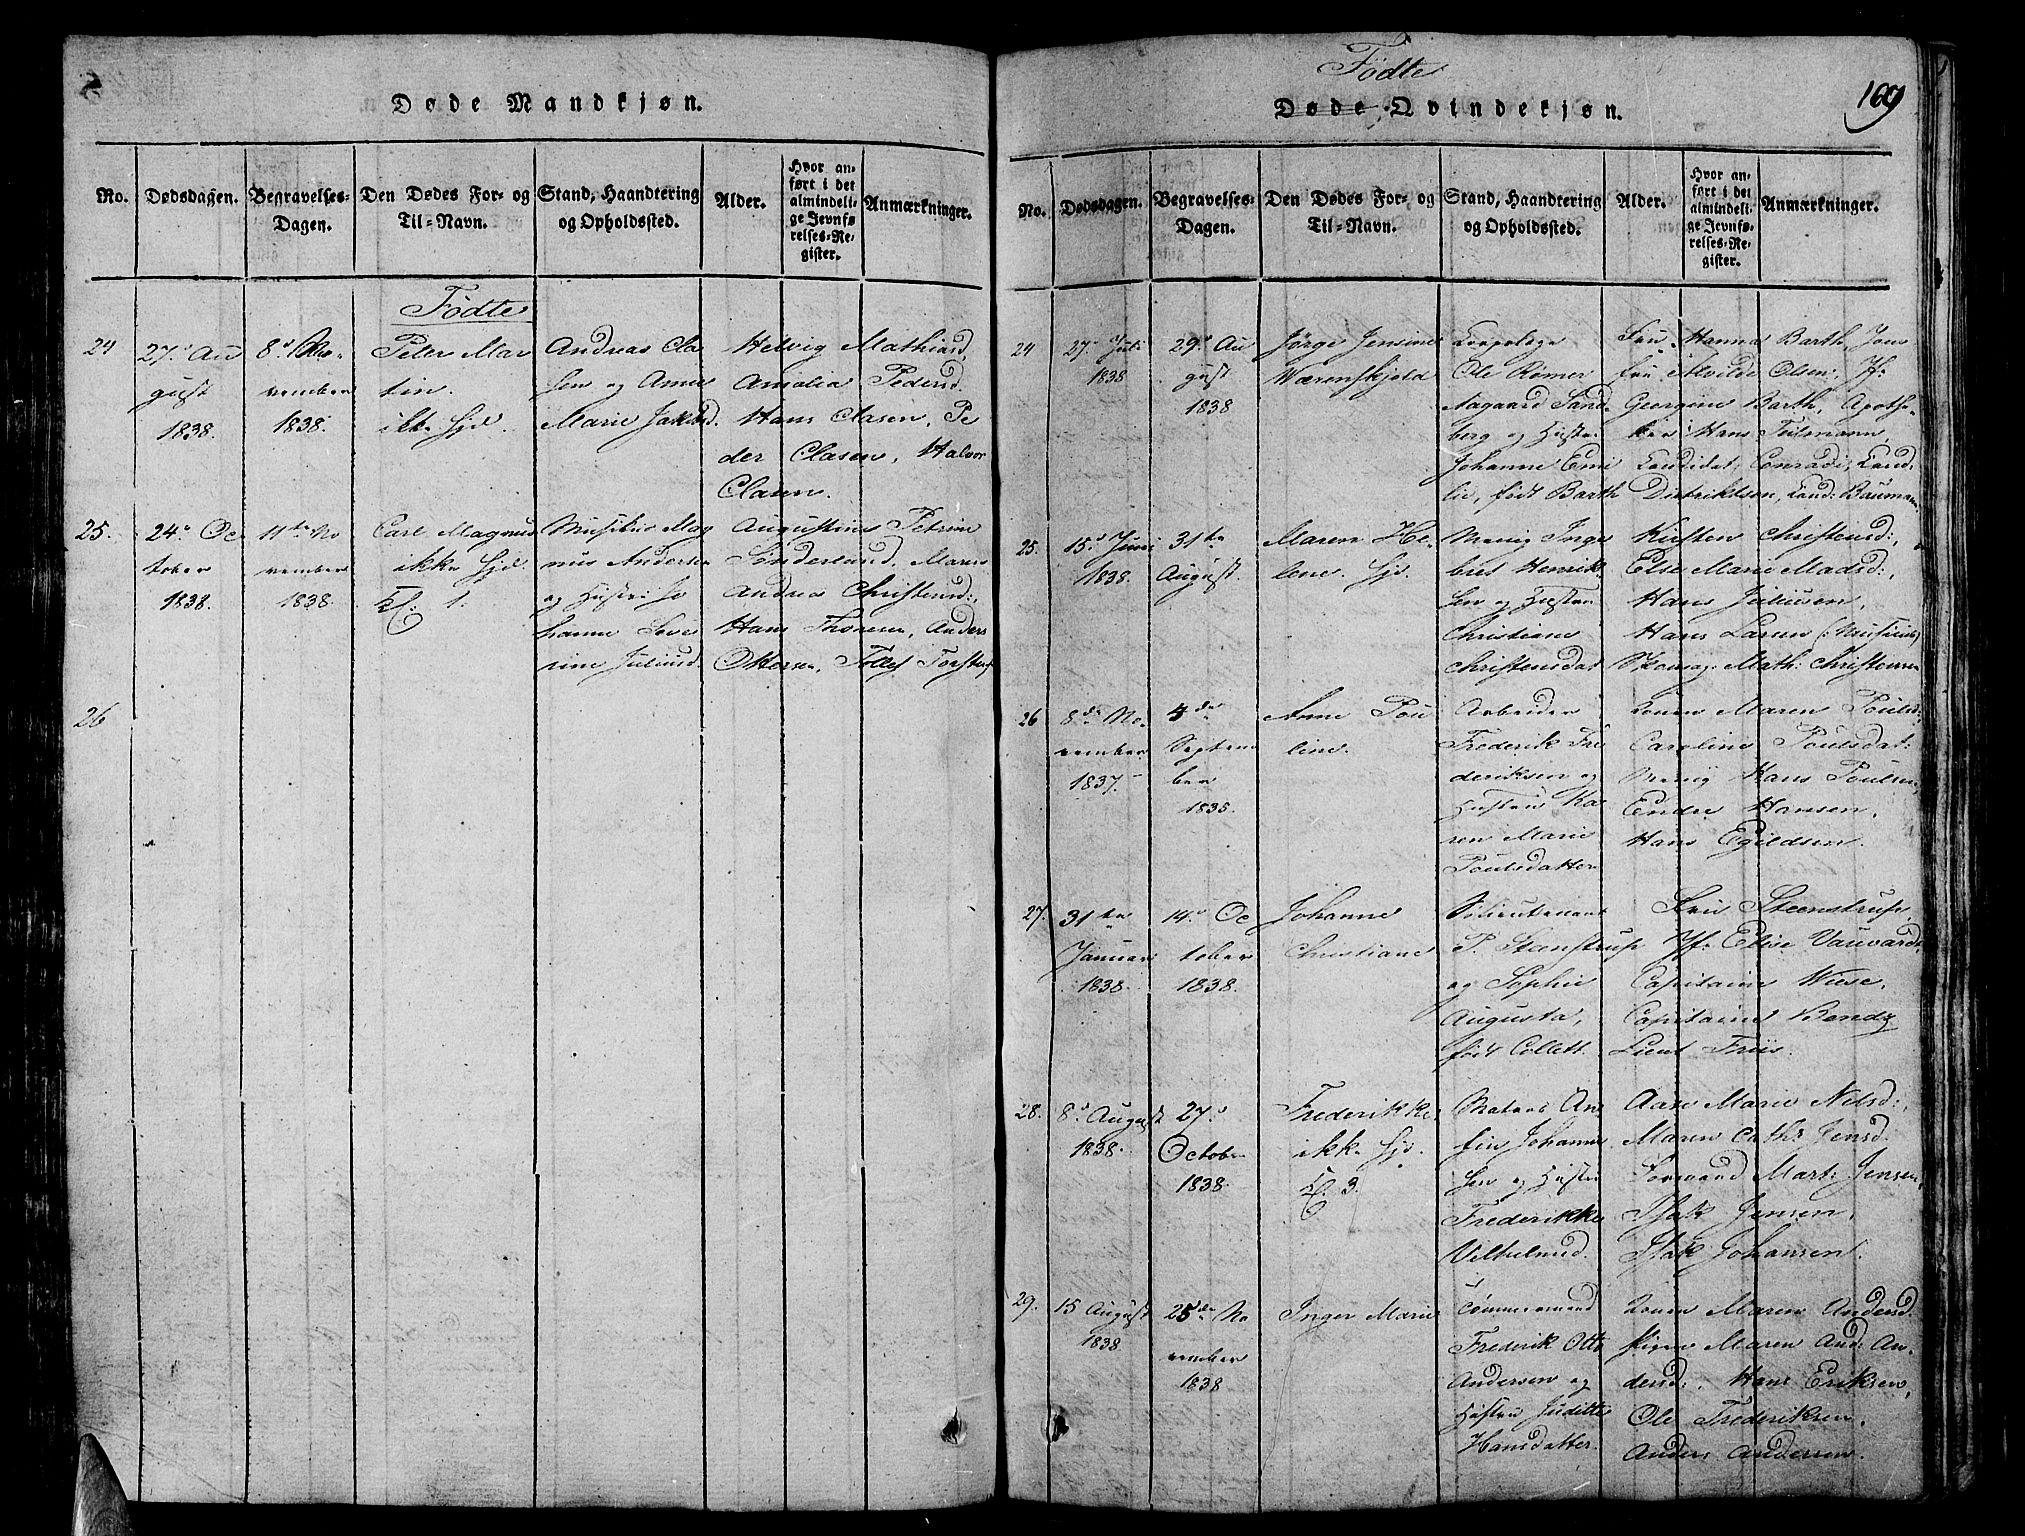 Døde Mandkjøn.
No.
Dødsdagen.
Begravelses-
Dagen.
Den Dødes For- og
Til-Navn.
Stand, Haandtering
og Opholdssted.
Alder.
Hvor an-
ført i det
almindeli-
ge Jevnfø-
relses-Re-
gister.
Anmærkninger.
Fødte
24
27. Au
gust
1838.
8. No-
vember
1838.
Peter Mar
tin.
ikke hjd.
Andreas Cla
sen og Anne
Marie Jakobsd.
Helvig Mathiasd,
Amalia Pedersd.
Hans Clasen, Pe
der Clasen, Halvor
Clasen.
25.
24. Oc
tober
1838.
11te No
vember
1838.
Carl Magnus
ikke hjd.
1.
Musikus Mag
nus Andersen
og Hustru Jo
hanne Seve
rine Juliusd.
Augustine Petrine
Sinderland, Maren
Andrea Christensd:,
Hans Thoresen, Anders
Ottersen, Tollef Torstens.
26
Fødte
Døde Qvindekjøn.
169
No.
Dødsdagen.
Begravelses-
Dagen.
Den Dødes For- og
Til-Navn.
Stand, Haandtering
og Opholdssted.
Alder.
Hvor an-
ført i det
almindeli-
ge Jevnfø-
relses-Re-
gister.
Anmærkninger.
24
27. Juli
1838
29. Au
gust
1838
Jørge Jensine
Wærenskjold
Ole Rømer
Aagaard Sand-
berg og Hustru
Johanne Emi
lie, født Barth
Fru Hanna Barth, Jom
fru Alvilde Olsen, Jf:
Georgine Barth, Apothe-
ker Hans Teilmann,
Candidat Conradi, Cand:
Diderikson, Cand: Baumann
25.
15. Juni
1838.
31te
August.
Maren He-
lene. hjd.
Menig Inge
bret Henrik-
sen og Hustru
Christiane
Christensdat
Kirsten Christensd:,
Else Marie Madsd:,
Hans Juliusen,
Hans Larsen
Math: Christensen
26
8de No-
vember
1837.
4de
Septem
ber
1838.
Anne Pou
line.
Arbeider
Frederik Fre
deriksen og
Hustru Ka
ren Marie
Poulsdatter
Konen Maren Poulsd:,
Caroline Poulsdat:
Menig Hans Poulsen,
Endre Hansen,
Hans Egildsen.
27.
31te
Januar
1838.
14. Oc
tober
1838.
Johanne
Christiane
P. Steenstrup
og Sophie
Augusta,
født Collett.
Fru Steenstrup,
Jf: Elise Vauvard
Capitaine Wiese,
Capitaine Bendz
Lieut Friis.
28.
8. August
1838.
27.
October
1838.
Frederikke.
ikke hjd.
3.
Matros An
fin Johanne
sen og Hustru
Frederikke
Vilhelmsd.
Aase Marie Nilsd:,
Maren Cath: Jensd.
Mart: Jensen,
Isak Jensen,
Isak Johansen.
29.
15 August
1838.
25de No
vember
1838
Inger Marie
Tømmermand
Frederik Otto
Andersen og
Hustru Juditte
Hansdatter.
Konen Maren Andersd.
Pigen Maren And: An-
dersd:, Hans Eriksen,
Ole Frederiksen.
Anders Andersen.